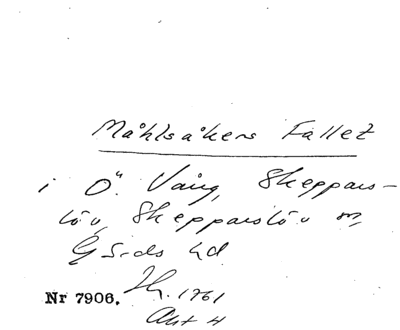 Måhlsåkers Fallet
i Ö. Vång, Skeppars-
löv, Skepparslöv sn,
Gärds hd
Nr 7906. 1761
Akt 4